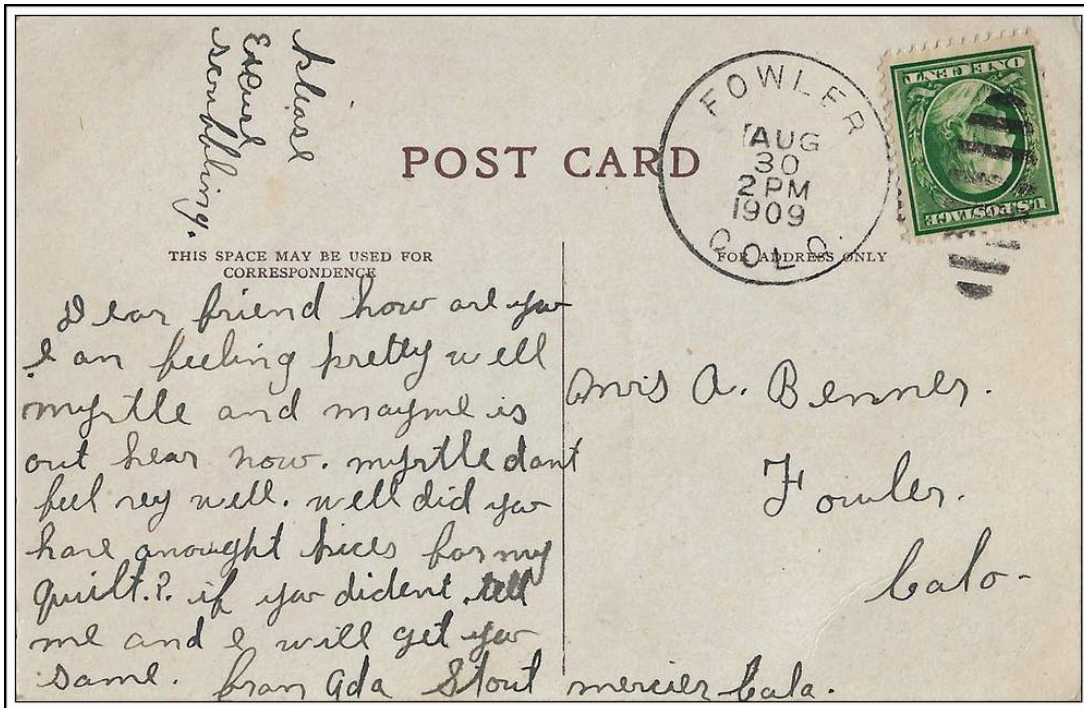 Please
Excuse
scombling.
POST CARD
FOWLER
AUG
30
2 PM
1909
COLO.
ONE CENT
U.S. POSTAGE
THIS SPACE MAY BE USED FOR
CORRESPONDENCE
FOR ADDRESS ONLY
Dear friend how are you
I am feeling pretty well
myrtle and mayme is
out hear now. myrtle dont
feel vey well. well did you
have anought pices for my
quilt.? if you dident tell
me and I will get you
some. from Ada Stout mercier Colo.
A. Benner.
Fowler.
Colo-